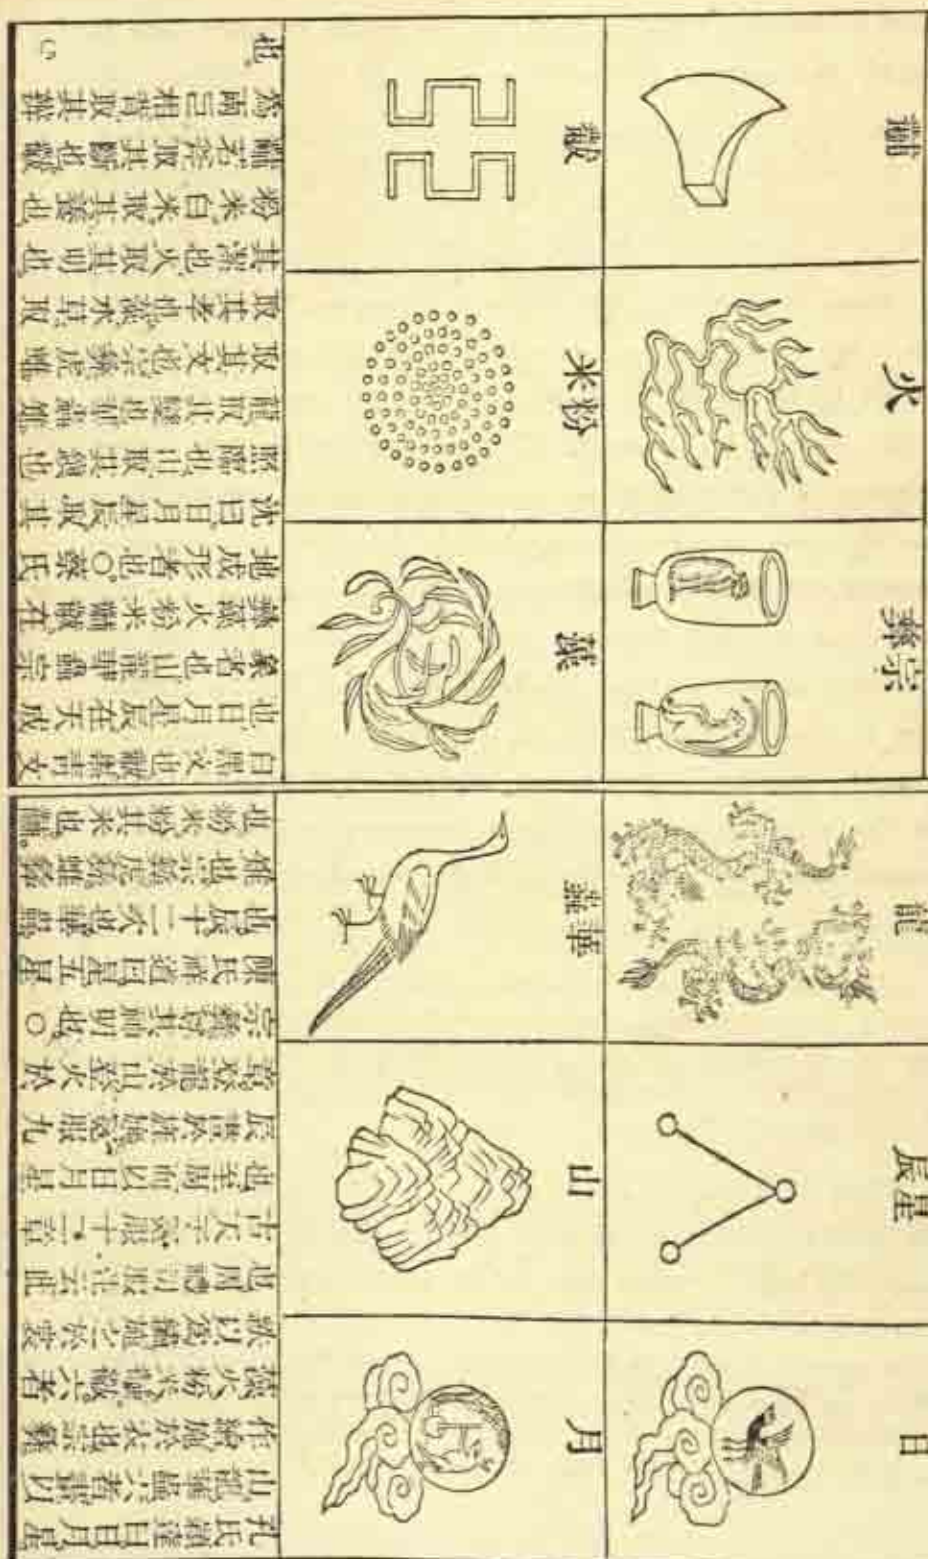 日
星辰
龍
宗彝
火
黼
月
山
華蟲
藻
粉米
黻
孔氏穎達曰日月星
山龍華蟲六者畫以
作繪施於衣也宗彝
藻火粉米黼黻六者
絺以爲繡施之於裳
也周禮司服注云此
古天子冕服十二章
也至周而以日月星
辰畫於旌旗冕服九
章登龍於山登火於
宗彝尊其神明也○
陳氏祥道曰星五星
也辰十二次也華蟲
雉也宗彝虎彝蜼彝
也粉米粉其米也黼
白黑文也黻黑靑文
也日月星辰在天成
象者也山龍華蟲宗
彝藻火粉米黼黻在
地成形者也○蔡氏
沈曰日月星辰取其
照臨也山取其鎭也
龍取其變也華蟲雉
取其文也宗彝虎蜼
取其孝也藻水草取
其潔也火取其明也
粉米白米取其養也
黼若斧取其斷也黻
爲兩己相背取其辨
也